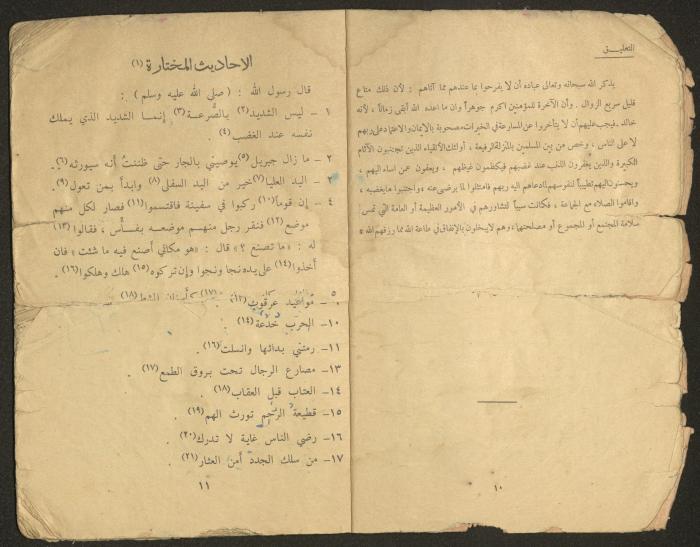 التعليق
يذكر الله سبحانه وتعالى عباده أن لا يفرحوا بما عندهم مما آتاهم : لأن ذلك متاع
قليل سريع الزوال . وأن الآخرة للمؤمنين اكرم جوهراً وان ما اعده الله أبقى زماناً ، لأنه
خالد . فيجب عليهم أن لا يتأخروا عن المسارعة في الخيرات مصحوبة بالايمان والاعتماد على ربهم
لا على الناس ، وخص من بين المسلمين بالمنزلة الرفيعة ، أولئك الأتقياء الذين تجنبون الآثام
الكبيرة والذين يغفرون الذنب عند غضبهم فيكظمون غيظهم ، ويعفون عمن اساء اليهم ،
ويحسنون اليهم تطييباً لنفوسهم لدعاهم اليه ربهم فامتثلوا لما يرضي عنه واجتنبوا ما يغضبه ،
واقاموا الصلاه مع الجماعة ، فكانت سبباً لتشاورهم في الأمور العظيمة أو العامة التي تمس
سلامة المجتمع أو المجموع أو مصلحتها، وهم لا يبخلون بالإنفاق في طاعة الله مما رزقهم الله *
١٠
الاحاديث المختارة (١)
قال رسول الله : ( صلى الله عليه وسلم ) :
١ - ليس الشديد(٢) بالصُّرعة(٣) إنمسا الشديد الذي يملك
نفسه عند الغضب (٤) .
٢ - ما زال جبريل (٥)يوصيني بالجار حتى ظننتُ أنه سيورثه (٦).
٣ - اليد العليا(٧)خير من اليد السفلى (٨) وابدأ بمن تعول (٩).
٤ - إن قوماً(١٠) ركبوا في سفينة فاقتسموا(١١) فصار لكل منهم
موضع (١٢) فنقر رجل منهسم موضعه بفسأس ، فقالوا (١٣)
له : « ما تصنع ؟ » قال : « هو مكاني أصنع فيه ما شئت » فان
أخذوا (١٤) على يده نجا ونجوا وإن تركوه (١٥) هلك وهلكوا (١٦).
عرقوب(١٣) .
١٠- الحرب خدعة (١٤)
١١- رمتني بدائها وانسلت (١٦) .
١٣- مصارع الرجال تحت بروق الطمع (١٧) .
١٤- العتاب قبل العقاب (١٨) .
١٥- قطيعة الرحم تورث الهم (١٩) .
١٦- رضى الناس غاية لا تدرك(٢٠) .
١٧- من سلك الجدد أمن العثار (٢١) .
١١